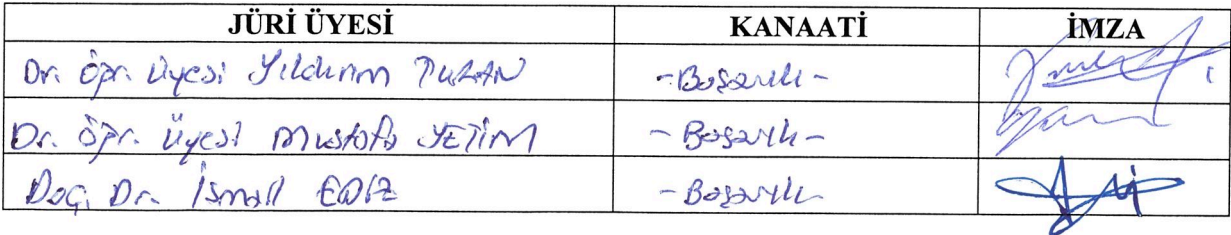 JÜRİ ÜYESİ KANAATİ İMZA
Dr. Öğr. Üyesi Yıldırım TURAN -Başarılı-
Dr. Öğr. Üyesi Mustafa YETİM -Başarılı-
Doç. Dr. İsmail EDİZ -Başarılı-